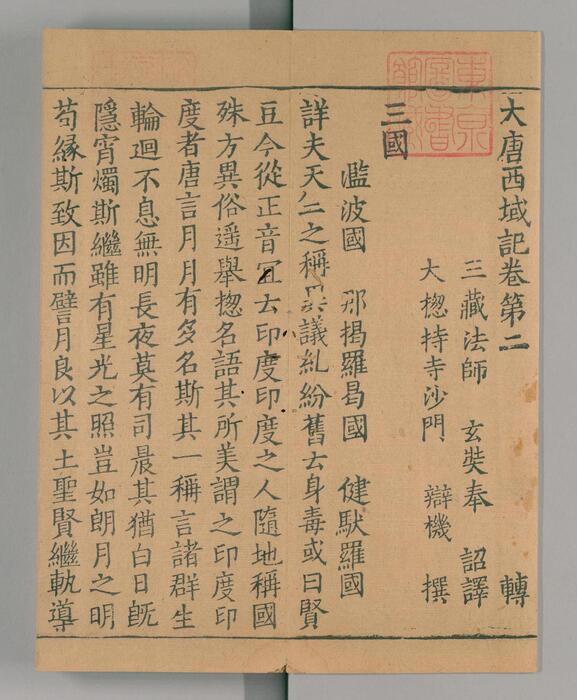 大唐西域記卷第二 轉
三藏法師 玄奘奉 詔譯
大揔持寺沙門 辯機 撰
三國
濫波國 那揭羅曷國 健馱羅國
詳夫天竺之稱異議糺紛舊云身毒或曰賢
豆今從正音宜云印度印度之人隨地稱國
殊方異俗遥舉揔名語其所美謂之印度印
度者唐言月月有多名斯其一稱言諸群生
輪迴不息無明長夜莫有司晨其猶白日旣
隱宵燭斯繼雖有星光之照豈如朗月之明
苟緣斯致因而譬月良以其土聖賢繼軌導
東京圖書館藏